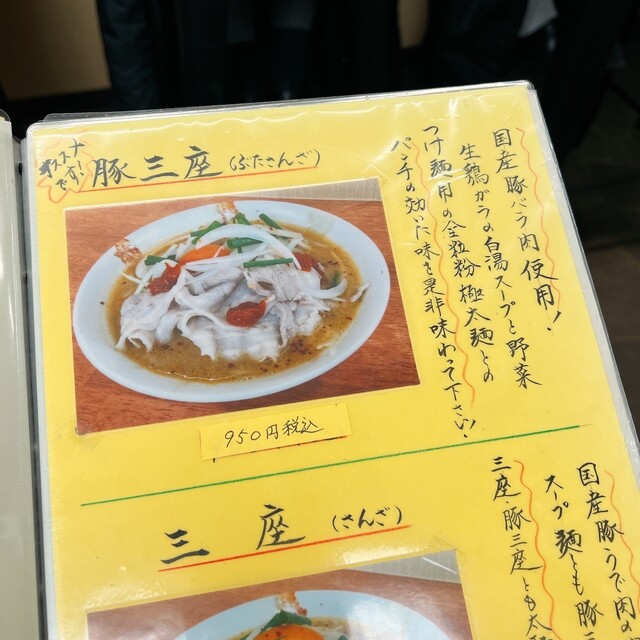 オススメです!
豚三座(ぶたさんざ)
国産豚バラ肉使用!
生鶏がらの白湯スープと野菜
つけ麺用の全粒粉極太麺との
パンチの効いた味を是非味わって下さい!
950円税込
三座(さんざ)
国産豚うで肉の
スープ麺とも豚三
三座・豚三座とも太